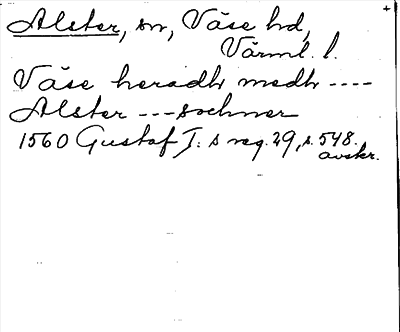 Alster, sn, Väse hd,
Värml. l.
Väse heradh medh ----
Alster --- sochner
1560 Gustaf I:s reg. 29, s. 548.
avskr.